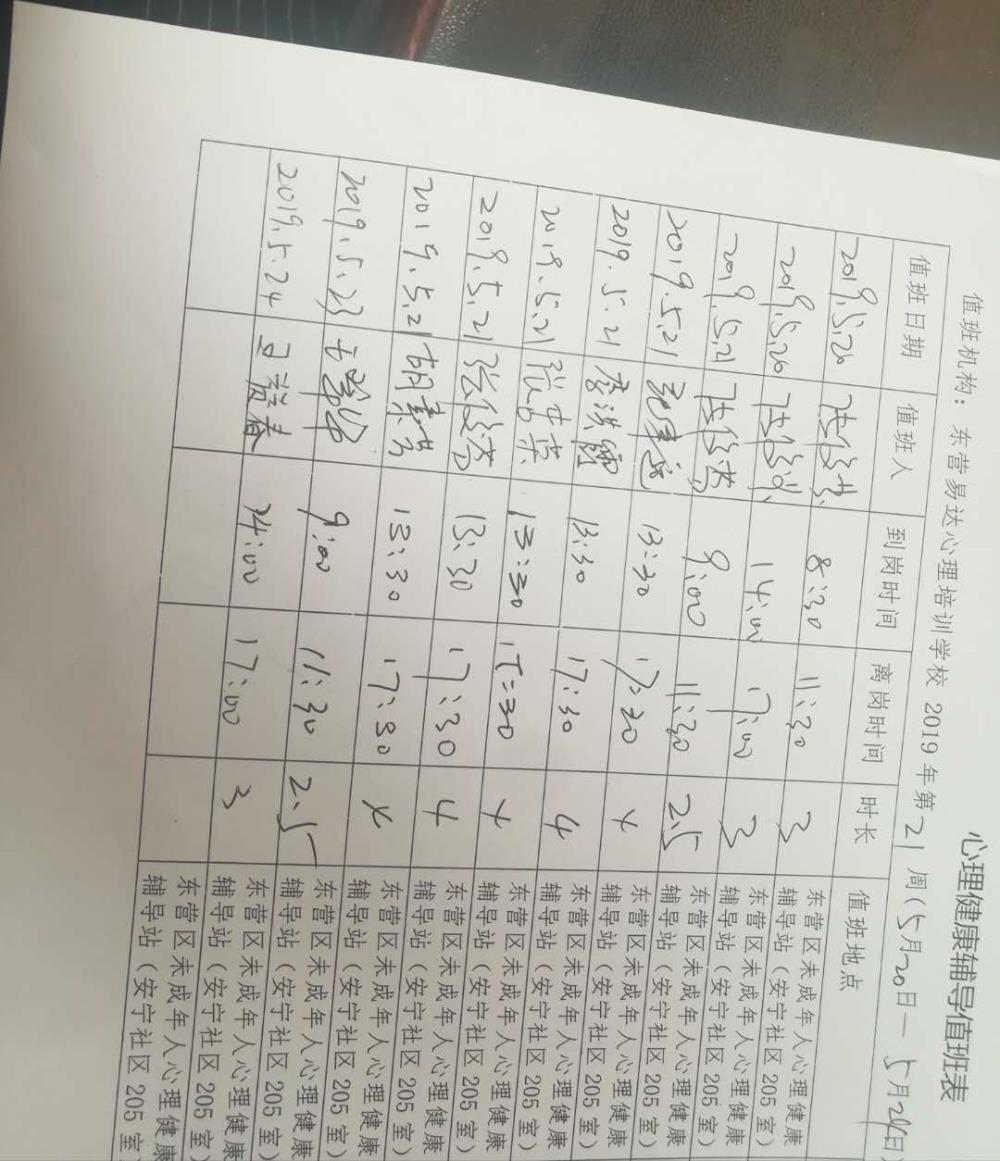 心理健康辅导值班表
值班机构：东营易达心理培训学校 2019 年第 21 周（5月20日一 5月24日）
值班日期 值班人 到岗时间 离岗时间 时长 值班地点
2019.5.20 8:30 11:30 3 东营区未成年人心理健康
辅导站（安宁社区 205 室）
2019.5.20 14:00 17:00 3 东营区未成年人心理健康
辅导站（安宁社区 205 室）
2019.5.21 9:00 11:30 2.5 东营区未成年人心理健康
辅导站（安宁社区 205 室）
2019.5.21 13:30 17:30 4 东营区未成年人心理健康
辅导站（安宁社区 205 室）
2019.5.21 13:30 17:30 4 东营区未成年人心理健康
辅导站（安宁社区 205 室）
2019.5.21 13:30 17:30 4 东营区未成年人心理健康
辅导站（安宁社区 205 室）
2019.5.21 13:30 17:30 4 东营区未成年人心理健康
辅导站（安宁社区 205 室）
2019.5.21 胡素芳 13:30 17:30 4 东营区未成年人心理健康
辅导站（安宁社区 205 室）
2019.5.23 9:00 11:30 2.5 东营区未成年人心理健康
辅导站（安宁社区 205 室）
2019.5.24 14:00 17:00 3 东营区未成年人心理健康
辅导站（安宁社区 205 室）
东营区未成年人心理健康
辅导站（安宁社区 205 室）